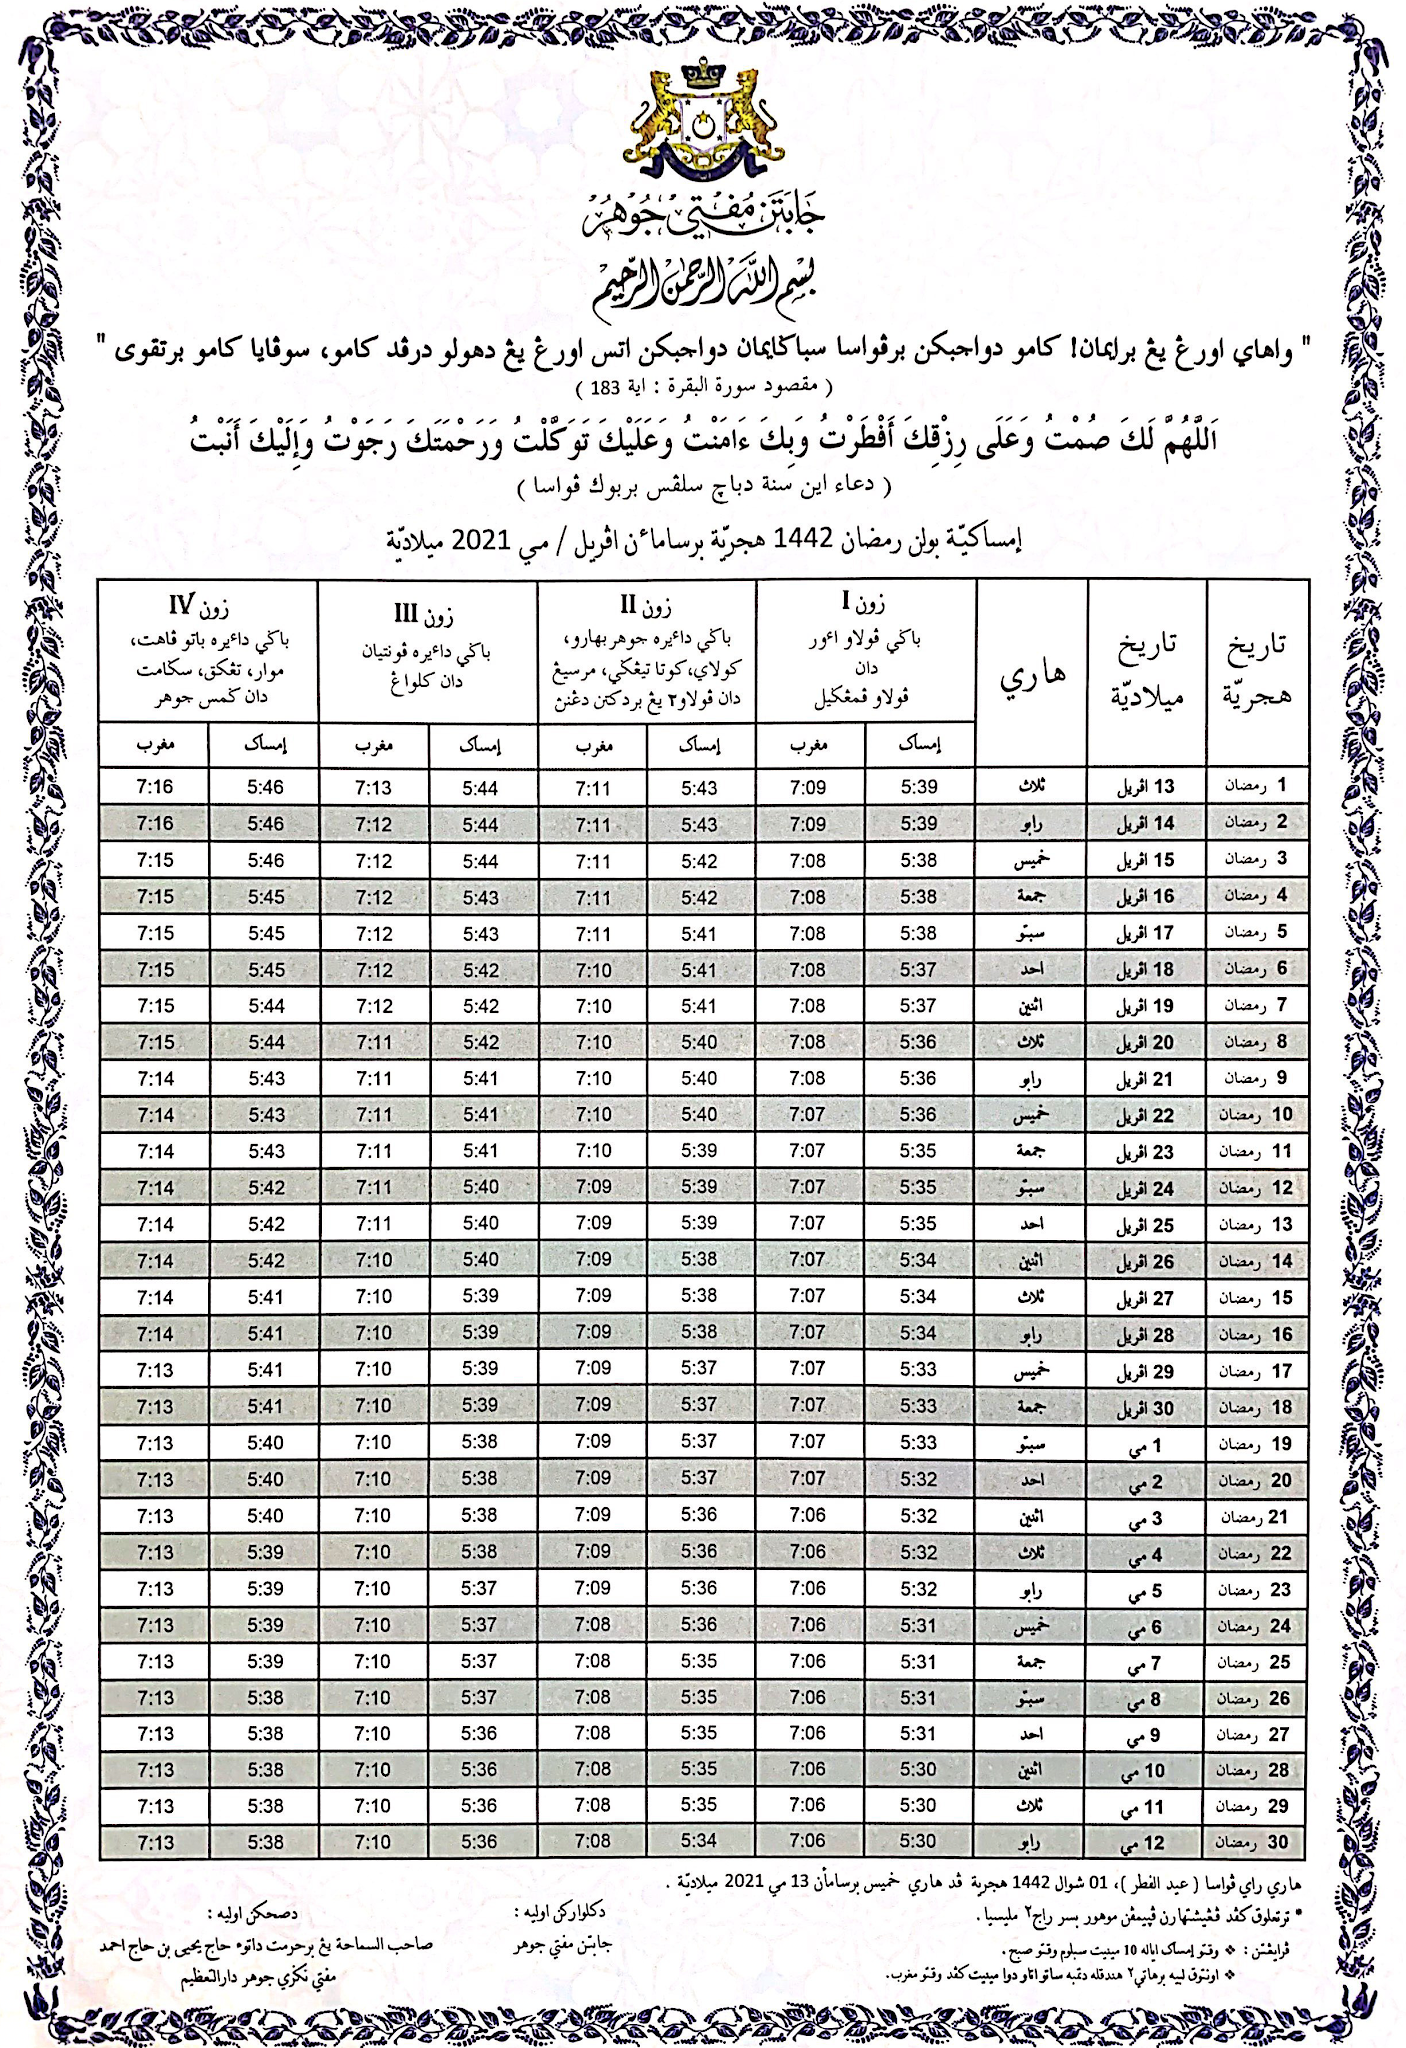 جابتن مفتي جوهر
بسم الله الرحمن الرحيم
" واهاي اورڠ يڠ برايمان! كامو دواجبكن برڤواسا سباݢايمان دواجبكن اتس اورڠ يڠ دهولو درڤد كامو، سوڤايا كامو برتقوى "
( مقصود سورة البقرة : اية 183 )
اَللَّهُمَّ لَكَ صُمْتُ وَعَلَى رِزْقِكَ أَفْطَرْتُ وَبِكَ ءَامَنْتُ وَعَلَيْكَ تَوَكَّلْتُ وَرَحْمَتَكَ رَجَوْتُ وَإِلَيْكَ أَنَبْتُ
( دعاء اين سنة دباچ سلڤس بربوك ڤواسا )
إمساكيّة بولن رمضان 1442 هجريّة برساماءن اڤريل / مي 2021 ميلاديّة
تاريخ هجريّة تاريخ ميلاديّة هاري
زون I
باݢي ڤولاو اءور
دان
ڤولاو ڤمڠݢيل
زون II
باݢي داءيره جوهر بهارو،
كولاي، كوتا تيڠݢي، مرسيڠ
دان ڤولاو٢ يڠ بردكتن دڠنن
زون III
باݢي داءيره ڤونتيان
دان كلواڠ
زون IV
باݢي داءيره باتو ڤاهت،
موار، تڠكق، سݢامت
دان ݢمس جوهر
إمساک مغرب إمساک مغرب إمساک مغرب إمساک مغرب
1 رمضان 13 اڤريل ثلاث 5:39 7:09 5:43 7:11 5:44 7:13 5:46 7:16
2 رمضان 14 اڤريل رابو 5:39 7:09 5:43 7:11 5:44 7:12 5:46 7:16
3 رمضان 15 اڤريل خميس 5:38 7:08 5:42 7:11 5:44 7:12 5:46 7:15
4 رمضان 16 اڤريل جمعة 5:38 7:08 5:42 7:11 5:43 7:12 5:45 7:15
5 رمضان 17 اڤريل سبتو 5:38 7:08 5:41 7:11 5:43 7:12 5:45 7:15
6 رمضان 18 اڤريل احد 5:37 7:08 5:41 7:10 5:42 7:12 5:45 7:15
7 رمضان 19 اڤريل اثنين 5:37 7:08 5:41 7:10 5:42 7:12 5:44 7:15
8 رمضان 20 اڤريل ثلاث 5:36 7:08 5:40 7:10 5:42 7:11 5:44 7:15
9 رمضان 21 اڤريل رابو 5:36 7:08 5:40 7:10 5:41 7:11 5:43 7:14
10 رمضان 22 اڤريل خميس 5:36 7:07 5:40 7:10 5:41 7:11 5:43 7:14
11 رمضان 23 اڤريل جمعة 5:35 7:07 5:39 7:10 5:41 7:11 5:43 7:14
12 رمضان 24 اڤريل سبتو 5:35 7:07 5:39 7:09 5:40 7:11 5:42 7:14
13 رمضان 25 اڤريل احد 5:35 7:07 5:39 7:09 5:40 7:11 5:42 7:14
14 رمضان 26 اڤريل اثنين 5:34 7:07 5:38 7:09 5:40 7:10 5:42 7:14
15 رمضان 27 اڤريل ثلاث 5:34 7:07 5:38 7:09 5:39 7:10 5:41 7:14
16 رمضان 28 اڤريل رابو 5:34 7:07 5:38 7:09 5:39 7:10 5:41 7:14
17 رمضان 29 اڤريل خميس 5:33 7:07 5:37 7:09 5:39 7:10 5:41 7:13
18 رمضان 30 اڤريل جمعة 5:33 7:07 5:37 7:09 5:39 7:10 5:41 7:13
19 رمضان 1 مي سبتو 5:33 7:07 5:37 7:09 5:38 7:10 5:40 7:13
20 رمضان 2 مي احد 5:32 7:07 5:37 7:09 5:38 7:10 5:40 7:13
21 رمضان 3 مي اثنين 5:32 7:06 5:36 7:09 5:38 7:10 5:40 7:13
22 رمضان 4 مي ثلاث 5:32 7:06 5:36 7:09 5:38 7:10 5:39 7:13
23 رمضان 5 مي رابو 5:32 7:06 5:36 7:09 5:37 7:10 5:39 7:13
24 رمضان 6 مي خميس 5:31 7:06 5:36 7:08 5:37 7:10 5:39 7:13
25 رمضان 7 مي جمعة 5:31 7:06 5:35 7:08 5:37 7:10 5:39 7:13
26 رمضان 8 مي سبتو 5:31 7:06 5:35 7:08 5:37 7:10 5:38 7:13
27 رمضان 9 مي احد 5:31 7:06 5:35 7:08 5:36 7:10 5:38 7:13
28 رمضان 10 مي اثنين 5:30 7:06 5:35 7:08 5:36 7:10 5:38 7:13
29 رمضان 11 مي ثلاث 5:30 7:06 5:35 7:08 5:36 7:10 5:38 7:13
30 رمضان 12 مي رابو 5:30 7:06 5:34 7:08 5:36 7:10 5:38 7:13
هاري راي ڤواسا ( عيد الفطر )، 01 شوال 1442 هجرية ڤد هاري خميس برسامأن 13 مي 2021 ميلاديّة .
* ترتعلوق كڤد ڤڠيشتهارن ڤنيمڤن موهور بسر راج٢ مليسيا .
ڤرايڠتن : ❖ وقتو إمساک اياله 10 مينيت سبلوم وقتو صبح .
❖ اونتوق لبيه برهاتي٢ هندقله دتمبه ساتو اتاو دوا مينيت كڤد وقتو مغرب.
دكلواركن اوليه :
جابتن مفتي جوهر
دصحكن اوليه :
صاحب السماحة يڠ برحرمت داتوء حاج يحيى بن حاج احمد
مفتي نݢري جوهر دارالتعظيم